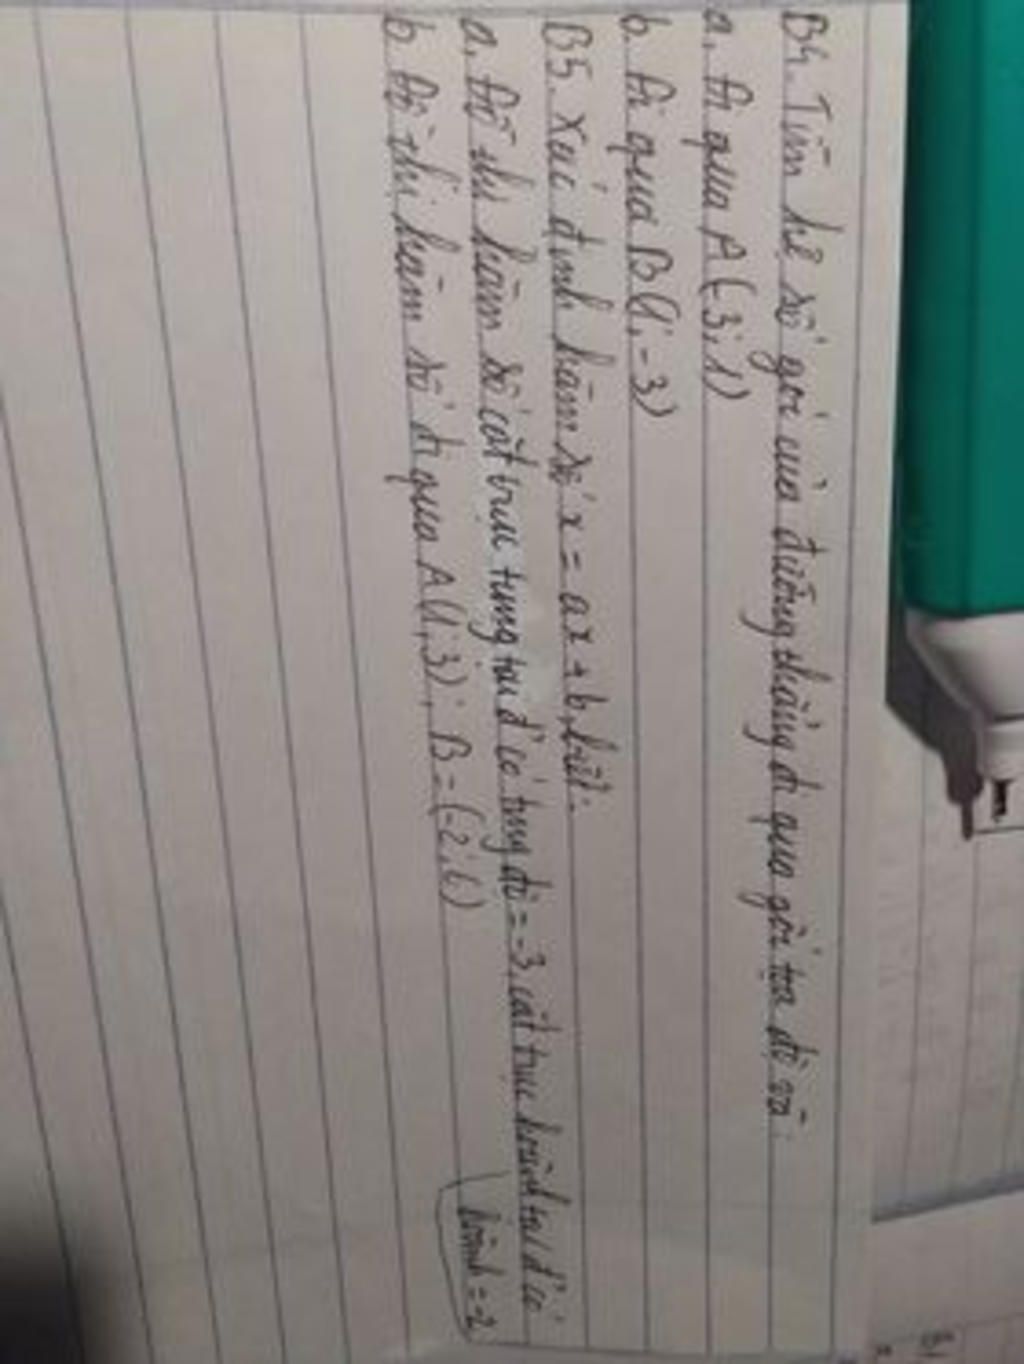 B4. Tìm hệ số góc của đường thẳng đi qua gốc tọa độ và:
a, Đi qua A(-3; 1)
b, Đi qua B(1; -3)
B5. Xác định hàm số x = ax + b, biết:
a, Đồ thị hàm số cắt trục tung tại đ' có tung độ = -3, cắt trục hoành tại đ' có
hoành = -2
b, Đồ thị hàm số đi qua A(1; 3); B = (-2; 6)